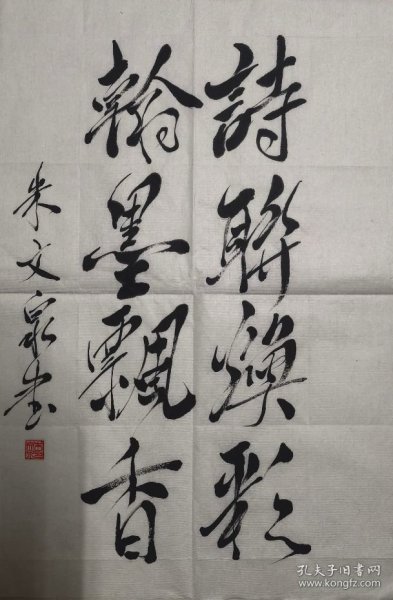 詩聯煥彩
翰墨飄香
朱文泉书
孔夫子旧书网
www.kongfz.com